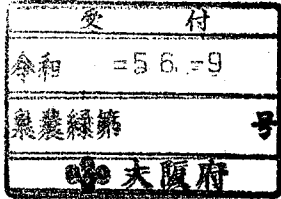 受付
令和 -5 6.-9
泉農緑第 号
大阪府